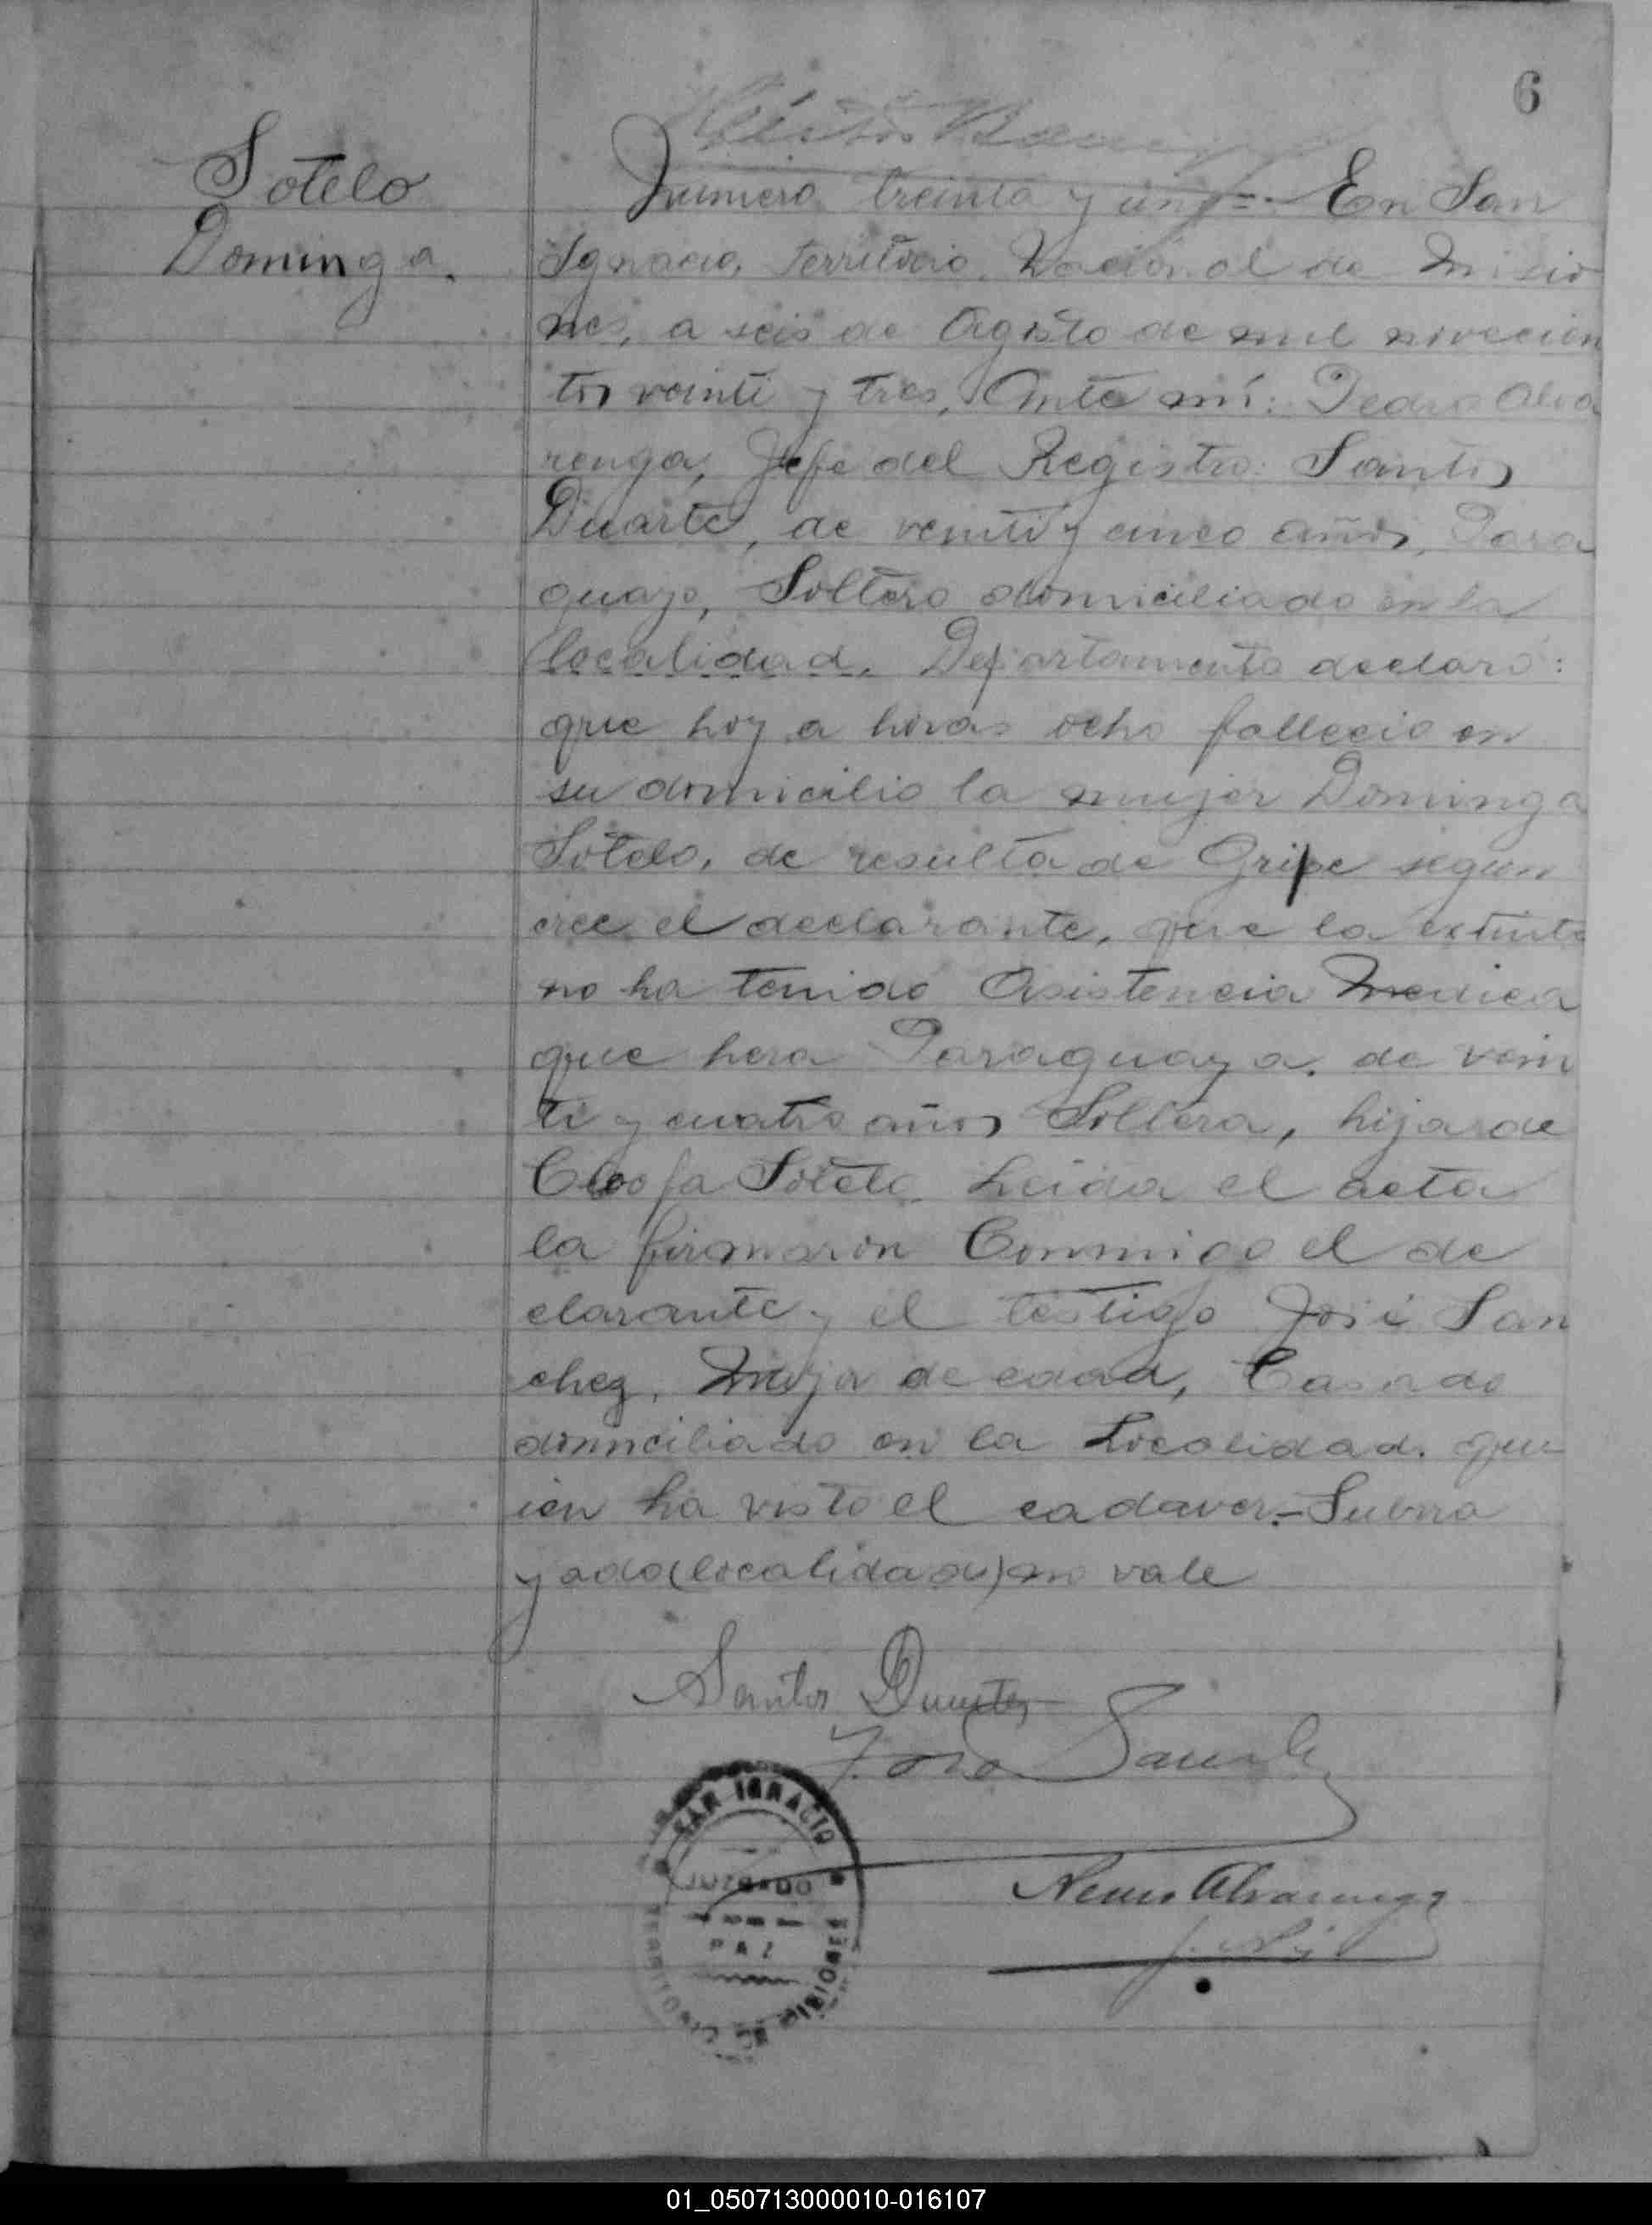 6
Sotelo
Dominga.
Numero treinta y uno=. En San
Ignacio, Territorio Nacional de Misio
nes, a seis de Agosto de mil novecien
tos veinti y tres, Ante mí: Pedro Alva
renga, Jefe del Registro: Santos
Duarte, de veinti y cinco años, Para
guayo, Soltero domiciliado en la
localidad. Departamento declaró:
que hoy a horas ocho fallecio en
su domicilio la mujer Dominga
Sotelo, de resulta de Gripe segun
cree el declarante, que la extinta
no ha tenido Asistencia Medica
que hera Paraguaya. de vein
ti y cuatro años Soltera, hija de
Cleofa Sotelo Leida el acta
la firmaron Conmigo el de
clarante y el testigo José San
chez, Mayor de edad, Casado
domiciliado en la Localidad. qu
ien ha visto el cadaver.=Subra
yado (localidad) no vale
Santos Duarte
Sanch
SAN IGNACIO
JUZGADO
PAZ
TERRITORIO DE MISIONES
Alvarenga
01_050713000010-016107